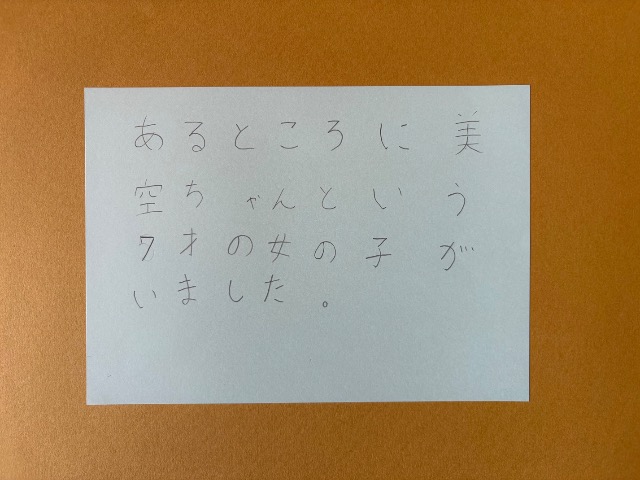 あるところに美
空ちゃんという
7才の女の子が
いました。